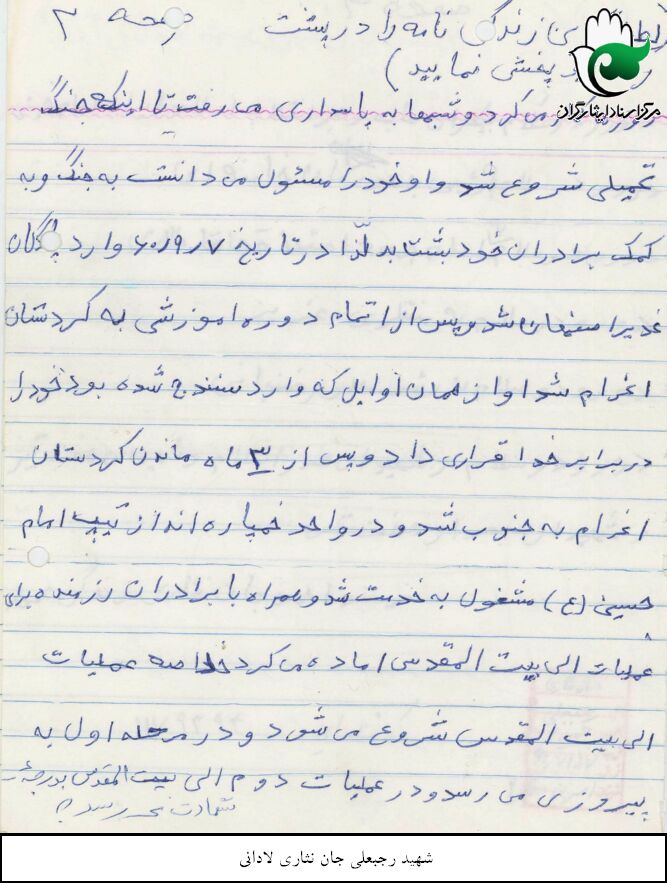 لطفاً این زندگی نامه را در پشت صفحه ۲
پخش نمایید)
مرکز اسناد ایثارگران
می کرد و شبها به پاسداری می رفت تا اینکه جنگ
تحمیلی شروع شد و او خود را مسئول می دانست به جنگ و به
کمک برادران خود بشتابد لذا در تاریخ ۶۰/۹/۷ وارد پادگان
غدیر اصفهان شد و پس از اتمام دوره اموزشی به کردستان
اغرام شد او از همان اوایل که وارد سنندج شده بود خود را
در برابر خدا قراری داد و پس از ۳ ماه ماندن کردستان
اغرام به جنوب شد و در واحد خمپاره انداز تیپ امام
حسین (ع) مشغول به خدمت شد و همراه با برادران رزمنده برای
عملیات الی بیت المقدس اماده می کرد خلاصه عملیات
الی بیت المقدس شروع می شود و در مرحله اول به
پیروزی می رسد و در عملیات دوم الی بیت المقدس بدرجه
شهادت می رسد
شهید رجبعلی جان نثاری لادانی